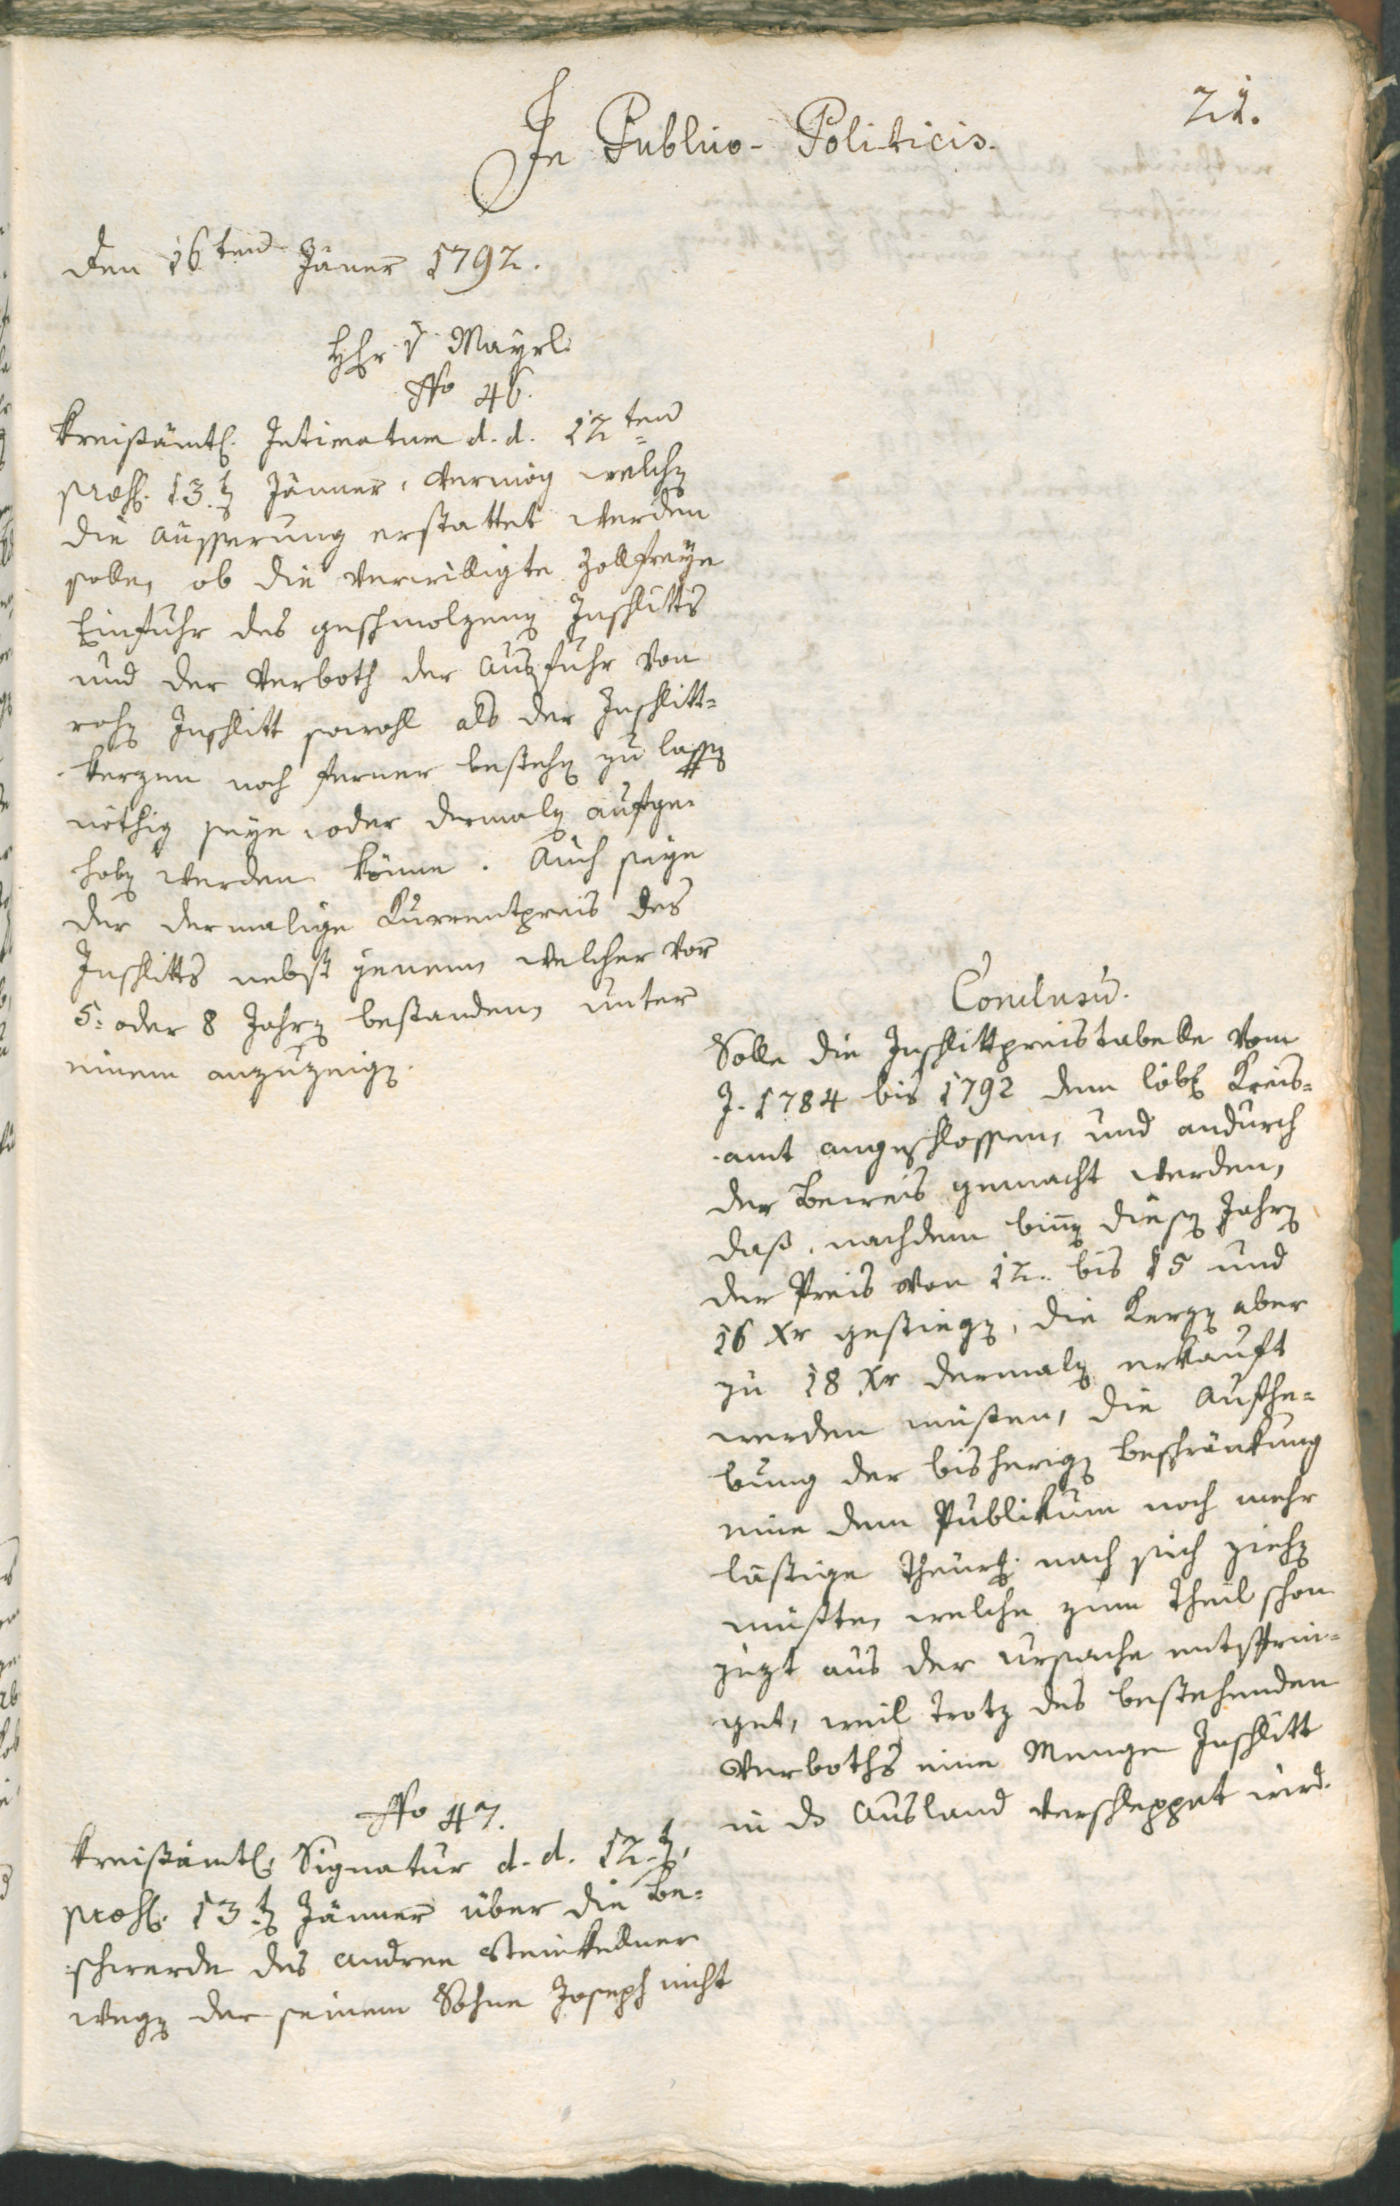 21.
In Publico-Politicis.
den 16ten Jäner 1792.
Hhr v Mayrl.
No 46.
Kreißämtl. Intimatum d. d. 12ten
præs. 13.t Jänner, vermög welch
die Äusserung erstattet werden
solle, ob die verwilligte Zollfreye
Einfuhr des geschmolzenen Inschlitts
und der Verboth der Ausfuhr von
rohen Inschlitt sowohl als der Inschlitt=
kerzen noch ferner bestehen zu lassen
nöthig seye oder dermalen aufge=
hoben werden könne. Auch seye
der dermalige Currentpreis des
Inschlitts nebst jenem, welcher vor
5= oder 8 Jahren bestanden, unter
einem anzuzeigen.
Conclusu.
Solle die Inschlittpreistabelle vom
J. 1784 bis 1792 dem löbl. Kreis=
amt angeschlossen, und andurch
der Beweis gemacht werden,
daß, nachdem binnen diesen Jahren
der Preis von 12. bis 15 und
16 Xr gestiegen, die Kerzen aber
zu 18 Xr dermalen erkauft
werden müßen, die Aufhe=
bung der bisherigen Beschränkung
eine dem Publikum noch mehr
lästige Theur. nach sich ziehen
müßte, welche zum Theil schon
jezt aus der Ursache entsprin=
get, weil trotz des bestehenden
Verboths eine Menge Inschlitt
in ds Ausland verschleppet wird.
No 47.
Kreißämtl. Signatur d. d. 12.t,
præs. 13.t Jänner über die Be=
schwerde des Andree Steinkellner
wegen der seinem Sohne Joseph nicht